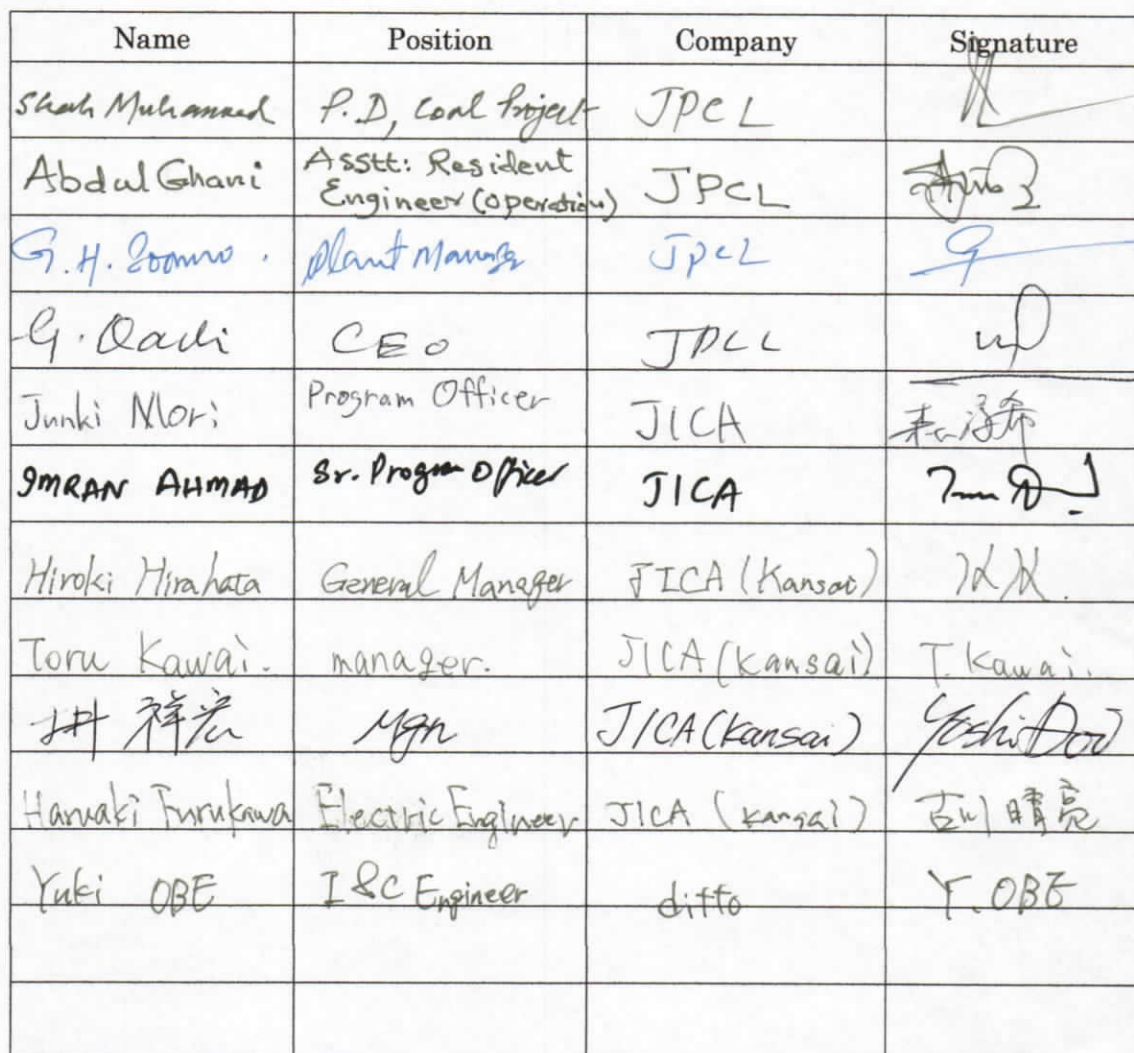 Name Position Company Signature
Shah Muhammad P.D, Coal Project JPCL
Abdul Ghani Asstt: Resident Engineer (operation) JPCL
G.H. Soomro. Plant Manager JPCL
G. Qadi CEO JPCL
Junki Mori Program Officer JICA
IMRAN AHMAD Sr. Program Officer JICA
Hiroki Hirahata General Manager JICA (Kansai)
Toru Kawai. manager. JICA (Kansai) T. Kawai.
祥宏 Mgr JICA (Kansai) Yoshi Doi
Haruaki Furukawa Electric Engineer JICA (kansai) 古川晴亮
Yuki OBE I & C Engineer ditto Y. OBE